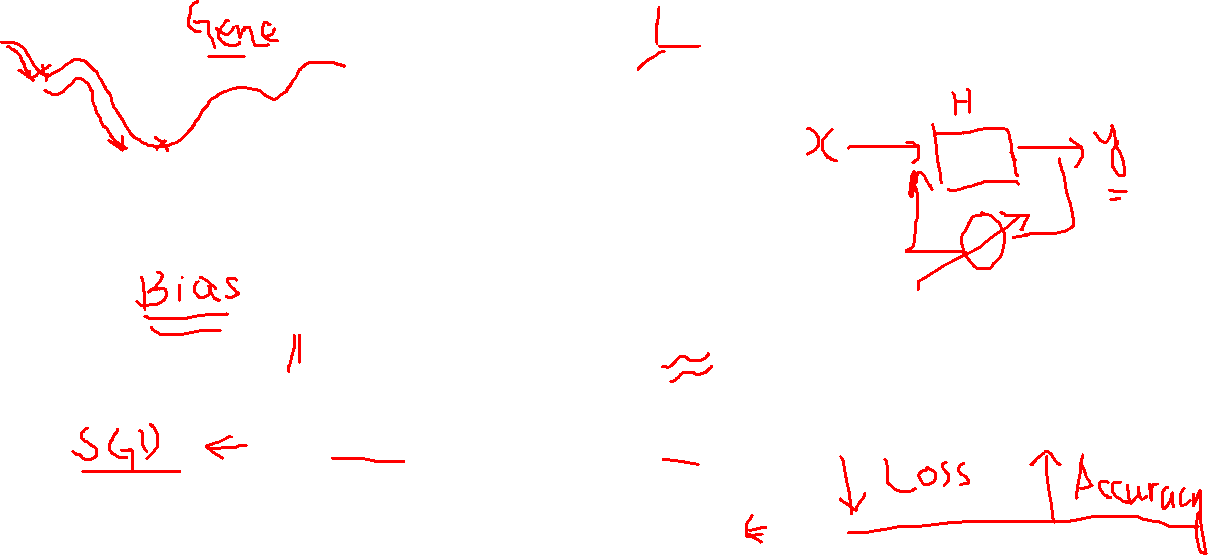 Gene
H
x y
Bias
SGD
Loss Accuracy